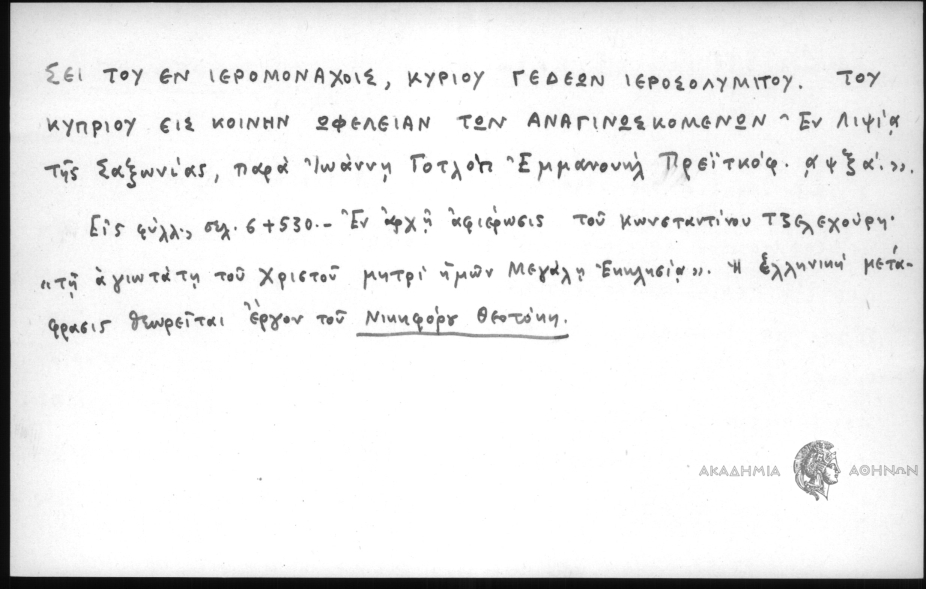 ΣΕΙ ΤΟΥ ΕΝ ΙΕΡΟΜΟΝΑΧΟΙΣ, ΚΥΡΙΟΥ ΓΕΔΕΩΝ ΙΕΡΟΣΟΛΥΜΙΤΟΥ. ΤΟΥ
ΚΥΠΡΙΟΥ ΕΙΣ ΚΟΙΝΗΝ ΩΦΕΛΕΙΑΝ ΤΩΝ ΑΝΑΓΙΝΩΣΚΟΜΕΝΩΝ Ἐν Λιψίᾳ
τῆς Σαξωνίας, παρὰ Ἰωάννῃ Γοτλὸπ Ἐμμανουὴλ Πρεϊτκόφ. ͵αψξα΄.».
Εἰς φύλλ., σελ. 6+530.- Ἐν ἀρχῇ ἀφιέρωσις τοῦ Κωνσταντίνου Τζελεχούρη·
«τῇ ἁγιωτάτῃ τοῦ Χριστοῦ μητρὶ ἡμῶν Μεγάλῃ Ἐκκλησίᾳ». Ἡ ἑλληνικὴ μετά-
φρασις θεωρεῖται ἔργον τοῦ Νικηφόρου Θεοτόκη.
ΑΚΑΔΗΜΙΑ ΑΘΗΝΩΝ